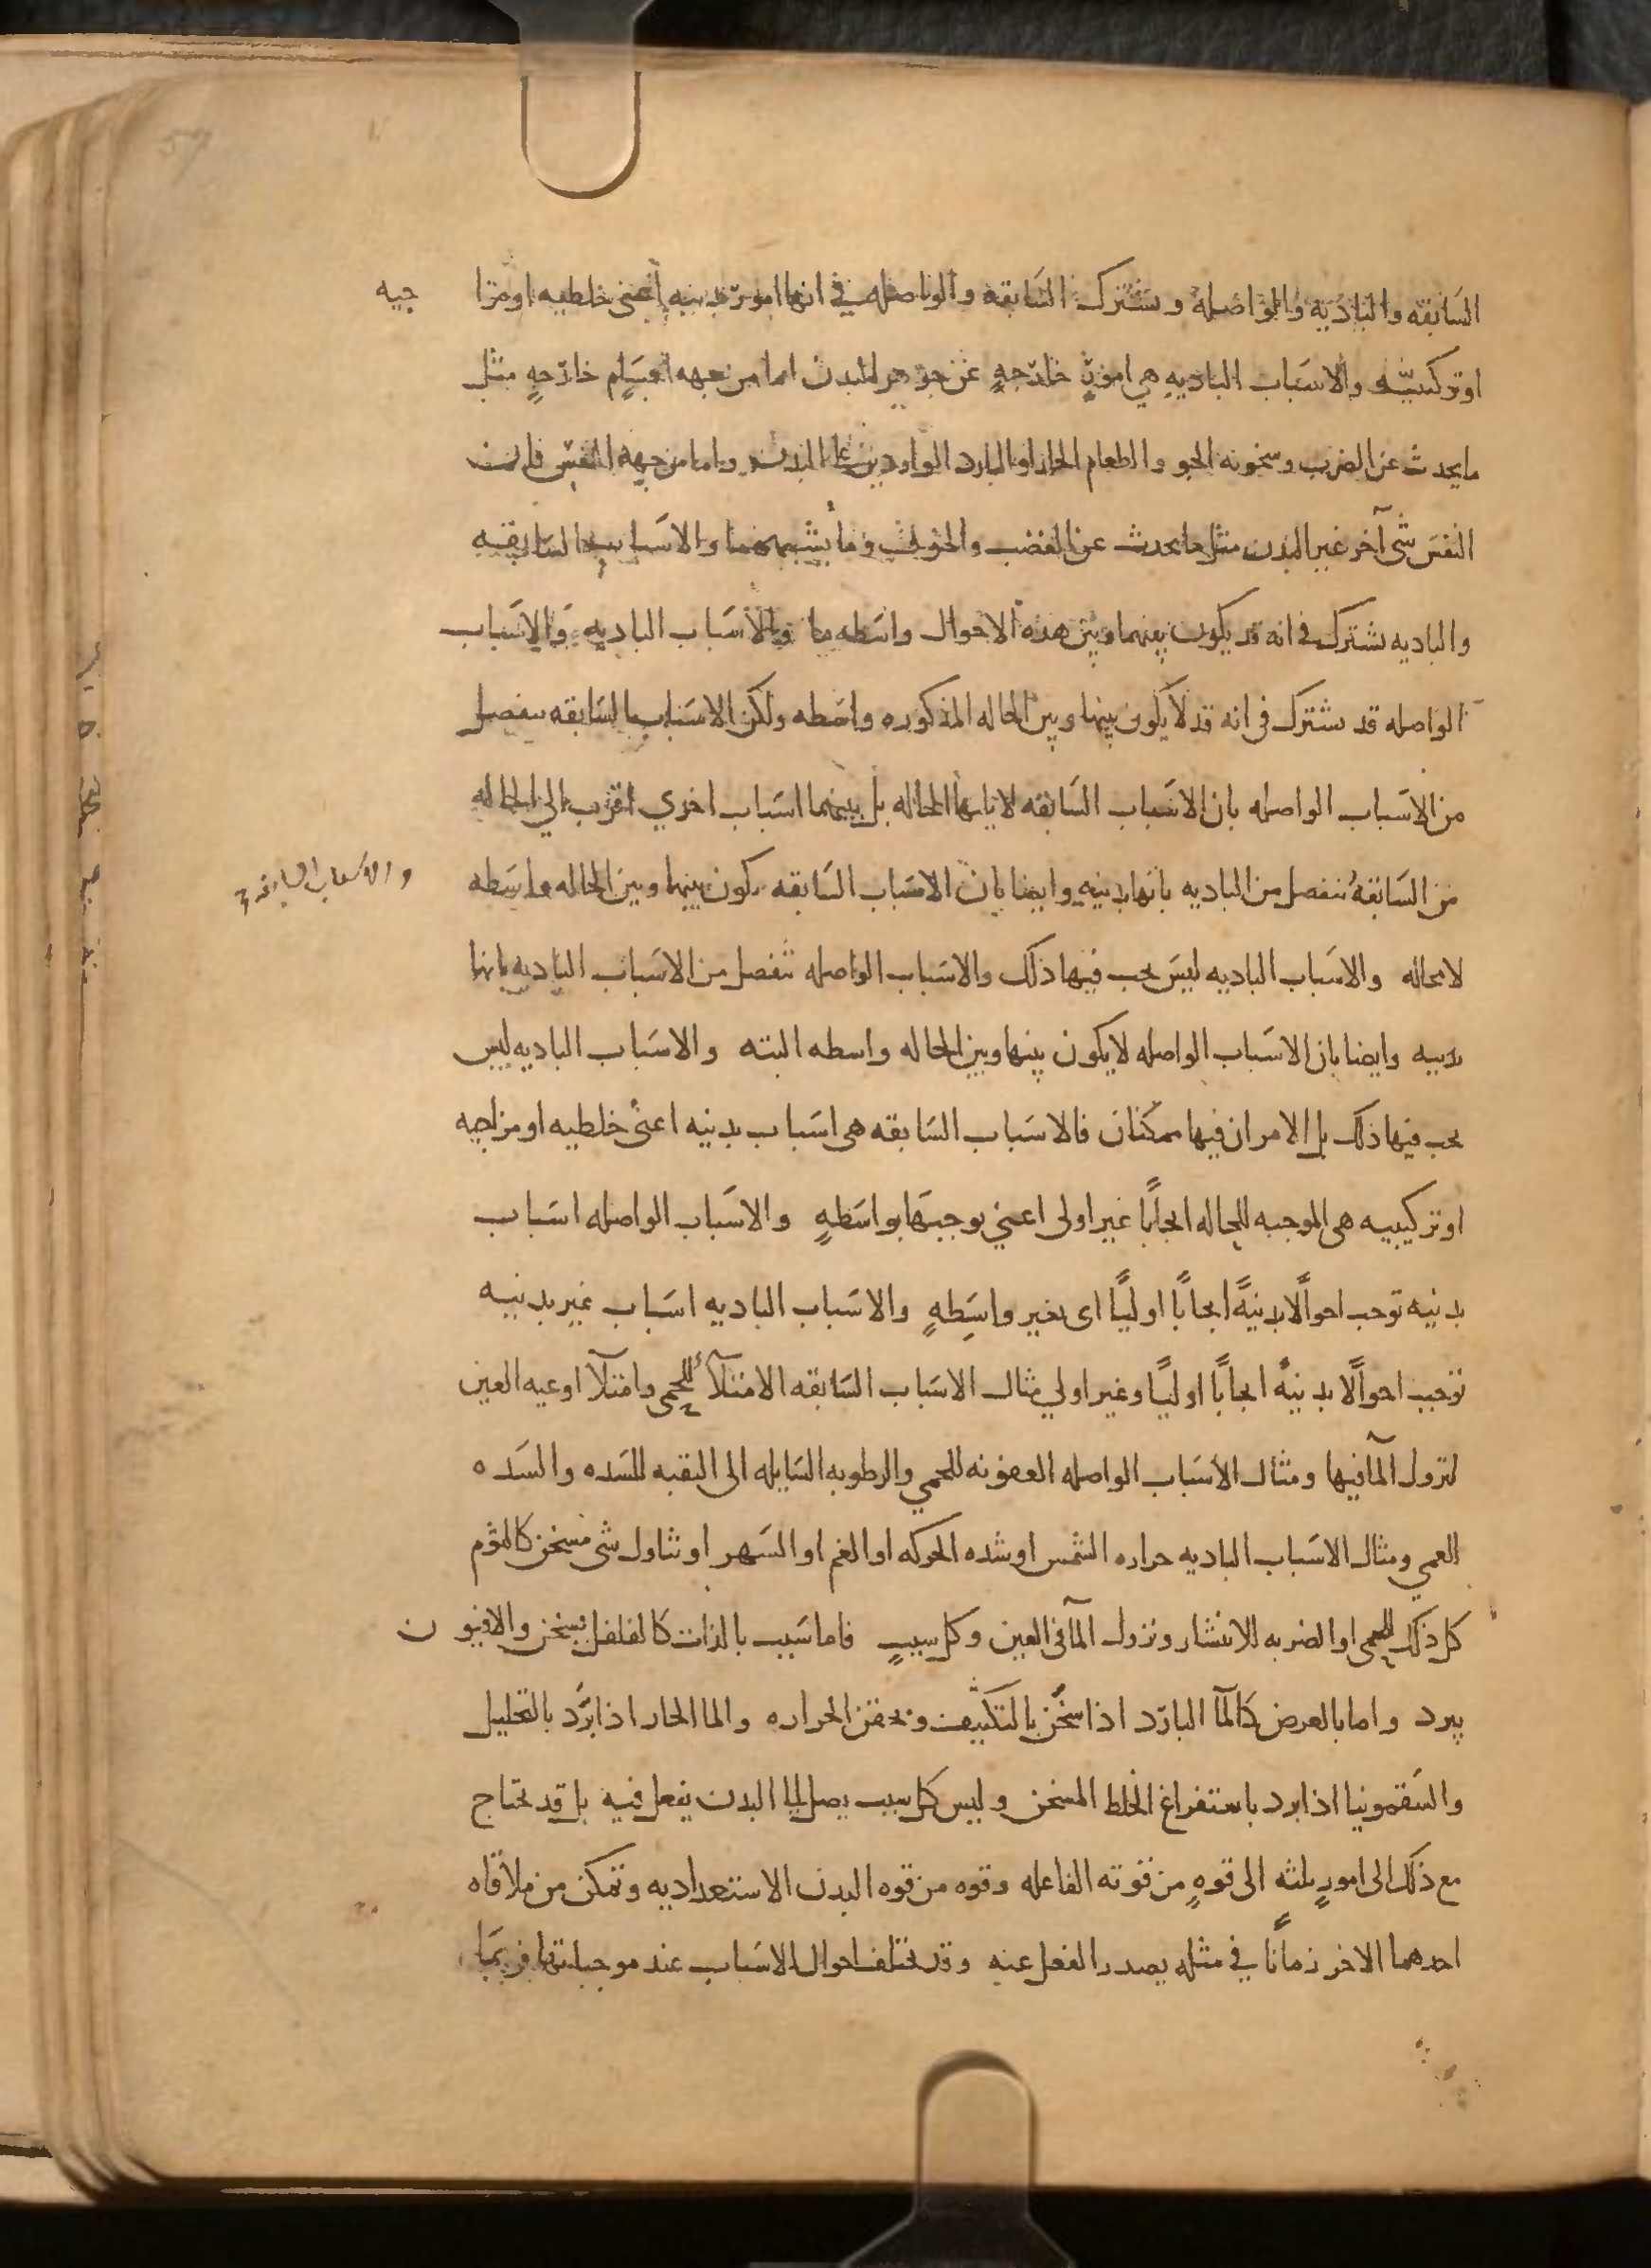 السابقه والباديه والواصله وتشترك السابقه والواصله في انها امور بدنيه اعني خلطيه او مزا جيه
او تركيبيه والاسباب الباديه هي امورٌ خارجهٍ عن جوهر البدن اما من جهه اجسامٍ خارجهٍ مثل
ما يحدث عن الضرب وسخونه الجو والطعام الحار او البارد الواردين على البدن واما من جهه النفس فان
النفس شى آخر غير البدن مثل ما يحدث عن الغضب والخوف وما يشبههما والاسباب السابقه
والباديه تشترك فى انه قد يكون بينهما وبين هذه الاحوال واسطه ما والاسباب الباديه والاسباب
الواصله قد تشترك فى انه قد لا يكون بينها وبين الحاله المذكوره واسطه ولكن الاسباب السابقه تنفصل
من الاسباب الواصله بان الاسباب السابقه لا يليها الحاله بل بينهما اسباب اخري اقرب الي الحاله
من السابقه تنفصل من الباديه بانها بدنيه وايضا بان الاسباب السابقه يكون بينها وبين الحاله واسطه
والاسباب السابقه
لا محاله والاسباب الباديه ليس يجب فيها ذلك والاسباب الواصله تنفصل من الاسباب الباديه بانها
بدنيه وايضا بان الاسباب الواصله لا يكون بينها وبين الحاله واسطه البته والاسباب الباديه ليس
يجب فيها ذلك بل الامران فيها ممكنان فالاسباب السابقه هى اسباب بدنيه اعنى خلطيه او مزاجيه
او تركيبيه هى الموجبه للحاله ايجابًا غير اولى اعني توجبها بواسطهٍ والاسباب الواصله اسباب
بدنيه توجب احوالًا بدنيهً ايجابًا اوليًا اى بغير واسطهٍ والاسباب الباديه اسباب غير بدنيه
توجب احوالًا بدنيهً ايجابًا اوليًا وغير اولي مثال الاسباب السابقه الامتلآ للحمى وامتلآ اوعيه العين
لنزول المآ فيها ومثال الاسباب الواصله العفونه للحمي والرطوبه السايله الى الثقبه للسده والسده
للعمي ومثال الاسباب الباديه حراره الشمس او شده الحركه او الغم او السهر او تناول شى مسخن كالثوم
كل ذلك للحمى او الضربه للانتشار ونزول المآ فى العين وكل سببٍ فاما سبب بالذات كالفلفل يسخن والافيون
يبرد واما بالعرض كالمآ البارد اذا سخن بالتكثيف وتحقن الحراره والما الحار اذا برّد بالتحليل
والسقمونيا اذا برد باستفراغ الخلط المسخن وليس كل سبب يصل الى البدن يفعل فيه بل قد يحتاج
مع ذلك الى امورٍ ثلثه الى قوهٍ من قوته الفاعله وقوه من قوه البدن الاستعداديه وتمكن من ملاقاه
احدهما الاخر زمانًا في مثله يصدر الفعل عنه وقد تختلف احوال الاسباب عند موجباتها فربما